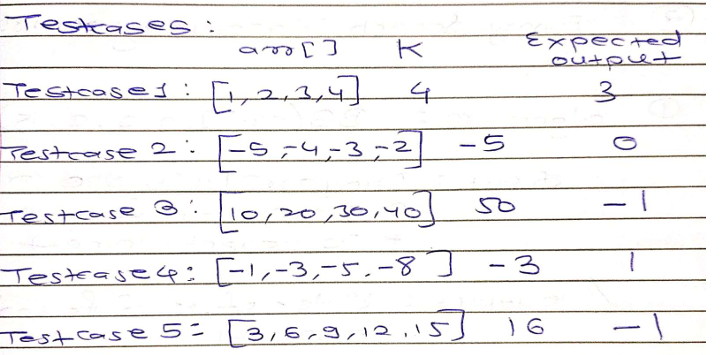 Testcases :
arr[] K Expected output
Testcase1 : [1, 2, 3, 4] 4 3
Testcase 2 : [-5, -4, -3, -2] -5 0
Testcase 3 : [10, 20, 30, 40] 50 -1
Testcase 4 : [-1, -3, -5, -8] -3 1
Testcase 5 = [3, 6, 9, 12, 15] 16 -1